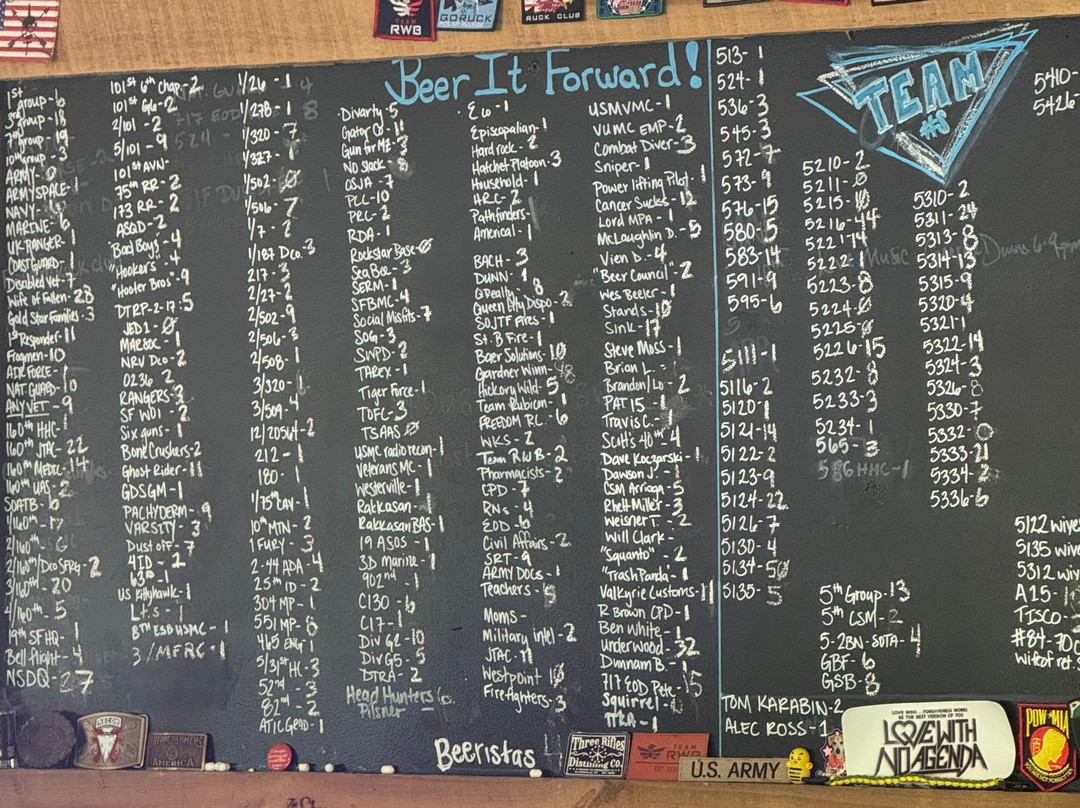 TEAM
RWB
GORUCK
RUCK CLUB
Beer It Forward!
1st group - 6
3rd group - 18
ARMY - 0
ARMY SPACE - 1
NAVY
MARINE - 6
UK RANGER - 1
COAST GUARD - 1
Disabled Vet - 7
Wife of Fallen - 28
Gold Star Families - 3
1st Responder - 11
Frogmen - 10
AIR FORCE - 1
NAT. GUARD
ANY VET - 9
160th HHC - 1
160th JTAC - 22
160th MEDIC - 14
160th UAS - 2
SOATB - 6
1/160th - 17
2/160th
2/160th/Dco SFRG - 2
3/160th - 20
4/160th - 5
19th SFHQ - 1
Bell flight - 4
NSDQ - 27
101st 6th chap. - 2
101st Glo - 2
2/101 - 2
5/101 - 9
101st AVN -
75th RR - 2
173 RR - 2
ASQD - 2
"Bad Boys" - 4
"Hooker's" - 4
"Hooter Bros" - 9
DTRP - 2-17: 5
JED 1 - 0
MARSOC - 1
NRV Dco - 2
0236 - 2
RANGERS - 3
SF WO1 - 2
Six guns - 1
Bone Crushers - 2
Ghost Rider - 11
GDSGM - 1
PACHYDERM - 9
VARSITY - 3
Dust off - 7
4ID - 2
63rd - 1
US Kittyhawk - 1
Lt.s - 1
8TH ESB USMC - 1
3/MFRC - 1
1/26 - 1
1/278 - 1
1/320 - 7
1/327 - 1
1/502 - 0
1/506 - 7
1/7 - 2
1/187 Dco. 3
217 - 3
2/27 - 2
2/502 - 9
2/506 - 3
2/508 - 1
3/320 - 1
3/509 - 4
12/20SF4 - 2
212 - 1
180 - 1
1/75th CAV - 1
10th MTN - 2
1 FURY - 3
2-44 ADA - 4
25th ID - 2
304 MP - 1
551 MP - 8
465 ENG 1
5/31st HC - 3
52nd - 3
82nd - 2
ATIC Grad - 1
Divarty - 5
Gator
Gun for Mz - 3
No Slack - 8
OSJA - 7
PLC - 10
PRC - 2
RDA - 1
Rockstar Base - 0
Sea Bee - 3
SERM - 1
SFBMC - 4
Social Misfits - 7
SOG - 3
SWPD - 2
TAREX - 1
Tiger Force - 1
TOFC - 3
TSAAS 0
USMC radio recon - 1
Veterans MC - 1
Westerville - 1
Rakkasan
Rakkasan BAS - 1
19 ASOS - 1
3D marine - 1
902nd - 1
C130 - 6
C17 - 1
Div G2 - 10
Div G5 - 5
DTRA - 2
Head Hunters
Pilsner
Eco - 1
Episcopalian - 1
Hard rock - 2
Hatchet Platoon - 3
Household - 1
HRC - 2
Pathfinders
Americal - 1
BACH - 3
DUNN - 1
O'Really - 8
Queen City Dispo - 2
SOJTF Fires - 1
St. B Fire - 1
Boer Solutions - 10
Gardner Winn
Hickory Wild - 5
Team Rubicon - 1
FREEDOM RC. - 6
WKS - 2
Team RWB - 2
Pharmacists - 2
CPD - 7
RNs - 4
EOD - 6
Civil Affairs - 2
SRT - 9
ARMY DOCS - 1
Teachers - 5
Moms -
Military intel - 2
JTAC - 11
Westpoint
Firefighters - 3
USMVMC - 1
VUMC EMP - 2
Combat Diver - 3
Sniper - 1
Power lifting Pilot - 1
Cancer Sucks - 12
Lord MPA - 1
McLaughlin D. - 5
Vien D. - 4
"Beer Council" - 2
Wes Beeler - 1
Stands - 10
Sink - 17
Steve Moss - 1
Brian L. - 1
Brandon/Lo - 2
PAT 15 - 1
Travis C. - 1
Scott's 40th 4
Dave Kaczarski - 1
Dawson J. - 1
CSM Arriaga - 5
Rhett Miller - 3
Weisner T. - 2
Will Clark -
"Squanto" - 2
"Trash Panda" - 1
Valkyrie Customs - 11
R Brown CPD - 1
Ben White - 1
Underwood - 32
Dunnam B - 1
717 EOD Pete - 15
Squirrel
TKA - 1
TEAM
#s
513 - 1
524 - 1
536 - 3
545 - 3
572 - 7
573 - 9
576 - 15
580 - 5
583 - 14
591 - 9
595 - 6
5111 - 1
5116 - 2
5120 - 1
5121 - 14
5122 - 2
5123 - 9
5124 - 22
5126 - 7
5130 - 4
5134 - 50
5135 - 5
TOM KARABIN - 2
ALEC ROSS - 1
5210 - 2
5211 - 0
5215
5216 - 44
5221 - 14
5222
5223 - 8
5224 - 0
5225 - 0
5226 - 15
5232 - 8
5233 - 3
5234 - 1
565 - 3
586 HHC - 1
5th Group - 13
5th CSM - 2
5-2BN-SOTA - 4
GBF - 6
GSB - 8
5310 - 2
5311 - 24
5313 - 8
5314 - 13
5315 - 9
5320 - 4
5321 - 1
5322 - 14
5324 - 3
5326 - 8
5330 - 7
5332 - 0
5333 - 21
5334 - 2
5336 - 6
5410 -
5426 -
5122 wive
5135 wive
5312 wiv
A15 -
TISCO
#84 - 70
wife of ret. s
Beeristas
RECON
AMERICA
Three Rifles
Distilling Co.
TEAM
RWB
U.S. ARMY
LOVE WINS . . . FORGIVENESS WORKS
BE THE BEST VERSION OF YOU
LOVE WITH
NO AGENDA
POW MIA